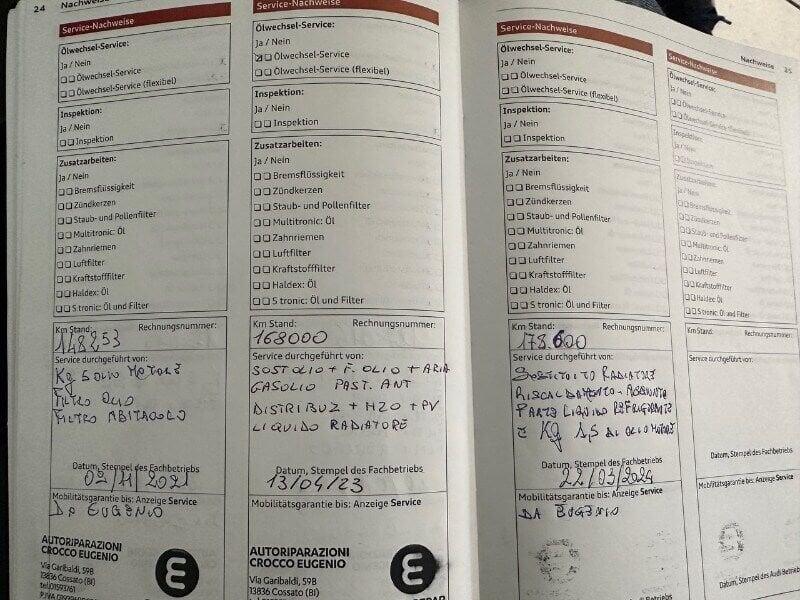 24 Nachweise
Service-Nachweise
Ölwechsel-Service:
Ja / Nein
Ölwechsel-Service
Ölwechsel-Service (flexibel)
Inspektion:
Ja / Nein
Inspektion
Zusatzarbeiten:
Ja / Nein
Bremsflüssigkeit
Zündkerzen
Staub- und Pollenfilter
Multitronic: Öl
Zahnriemen
Luftfilter
Kraftstofffilter
Haldex: Öl
S tronic: Öl und Filter
Km Stand: Rechnungsnummer:
148253
Service durchgeführt von:
Kg 5 OLIO MOTORE
FILTRO OLIO
FILTRO ABITACOLO
Datum, Stempel des Fachbetriebs
02/11/2021
Mobilitätsgarantie bis: Anzeige Service
DA EUGENIO
AUTORIPARAZIONI
CROCCO EUGENIO
Via Garibaldi, 59B
13836 Cossato (BI)
tel.01593761
Service-Nachweise
Ölwechsel-Service:
Ja / Nein
Ölwechsel-Service
Ölwechsel-Service (flexibel)
Inspektion:
Ja / Nein
Inspektion
Zusatzarbeiten:
Ja / Nein
Bremsflüssigkeit
Zündkerzen
Staub- und Pollenfilter
Multitronic: Öl
Zahnriemen
Luftfilter
Kraftstofffilter
Haldex: Öl
S tronic: Öl und Filter
Km Stand: Rechnungsnummer:
168000
Service durchgeführt von:
SOST OLIO + F. OLIO + ARIA
GASOLIO PAST. ANT
DISTRIBUZ + H2O + PV
LIQUIDO RADIATORE
Datum, Stempel des Fachbetriebs
13/04/23
Mobilitätsgarantie bis: Anzeige Service
AUTORIPARAZIONI
CROCCO EUGENIO
Via Garibaldi, 59B
13836 Cossato (BI)
Service-Nachweise
Ölwechsel-Service:
Ja / Nein
Ölwechsel-Service
Ölwechsel-Service (flexibel)
Inspektion:
Ja / Nein
Inspektion
Zusatzarbeiten:
Ja / Nein
Bremsflüssigkeit
Zündkerzen
Staub- und Pollenfilter
Multitronic: Öl
Zahnriemen
Luftfilter
Kraftstofffilter
Haldex: Öl
S tronic: Öl und Filter
Km Stand: Rechnungsnummer:
178.600
Service durchgeführt von:
SOSTITUITO RADIATORE
RISCALDAMENTO - AGGIUNTA
PARTE LIQUIDO REFRIGERANTE
E Kg 1,5 DI OLIO MOTORE
Datum, Stempel des Fachbetriebs
22/03/2024
Mobilitätsgarantie bis: Anzeige Service
DA EUGENIO
Nachweise 25
Service-Nachweise
Ölwechsel-Service:
Ja / Nein
Ölwechsel-Service
Ölwechsel-Service (flexibel)
Inspektion:
Ja / Nein
Inspektion
Zusatzarbeiten:
Ja / Nein
Bremsflüssigkeit
Zündkerzen
Staub- und Pollenfilter
Multitronic: Öl
Zahnriemen
Luftfilter
Kraftstofffilter
Haldex: Öl
S tronic: Öl und Filter
Km Stand: Rechnungsnummer:
Service durchgeführt von:
Datum, Stempel des Fachbetriebs
Mobilitätsgarantie bis: Anzeige Service
Datum, Stempel des Audi Betriebs